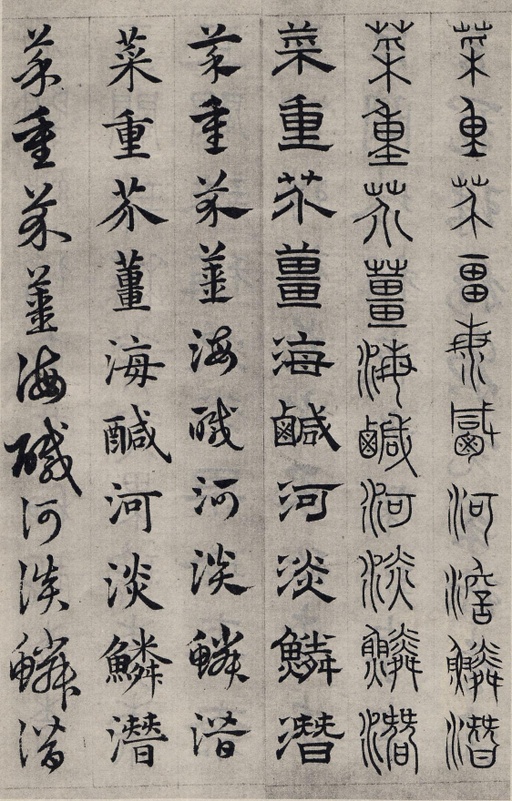 菜重芥畺海鹹河澹鱗潛
菜重芥薑海鹹河淡鱗潛
菜重芥薑海鹹河淡鱗潛
菜重芥薑海醎河淡鱗潛
菜重芥薑海醎河淡鱗潛
菜重芥薑海醎河淡鱗潛